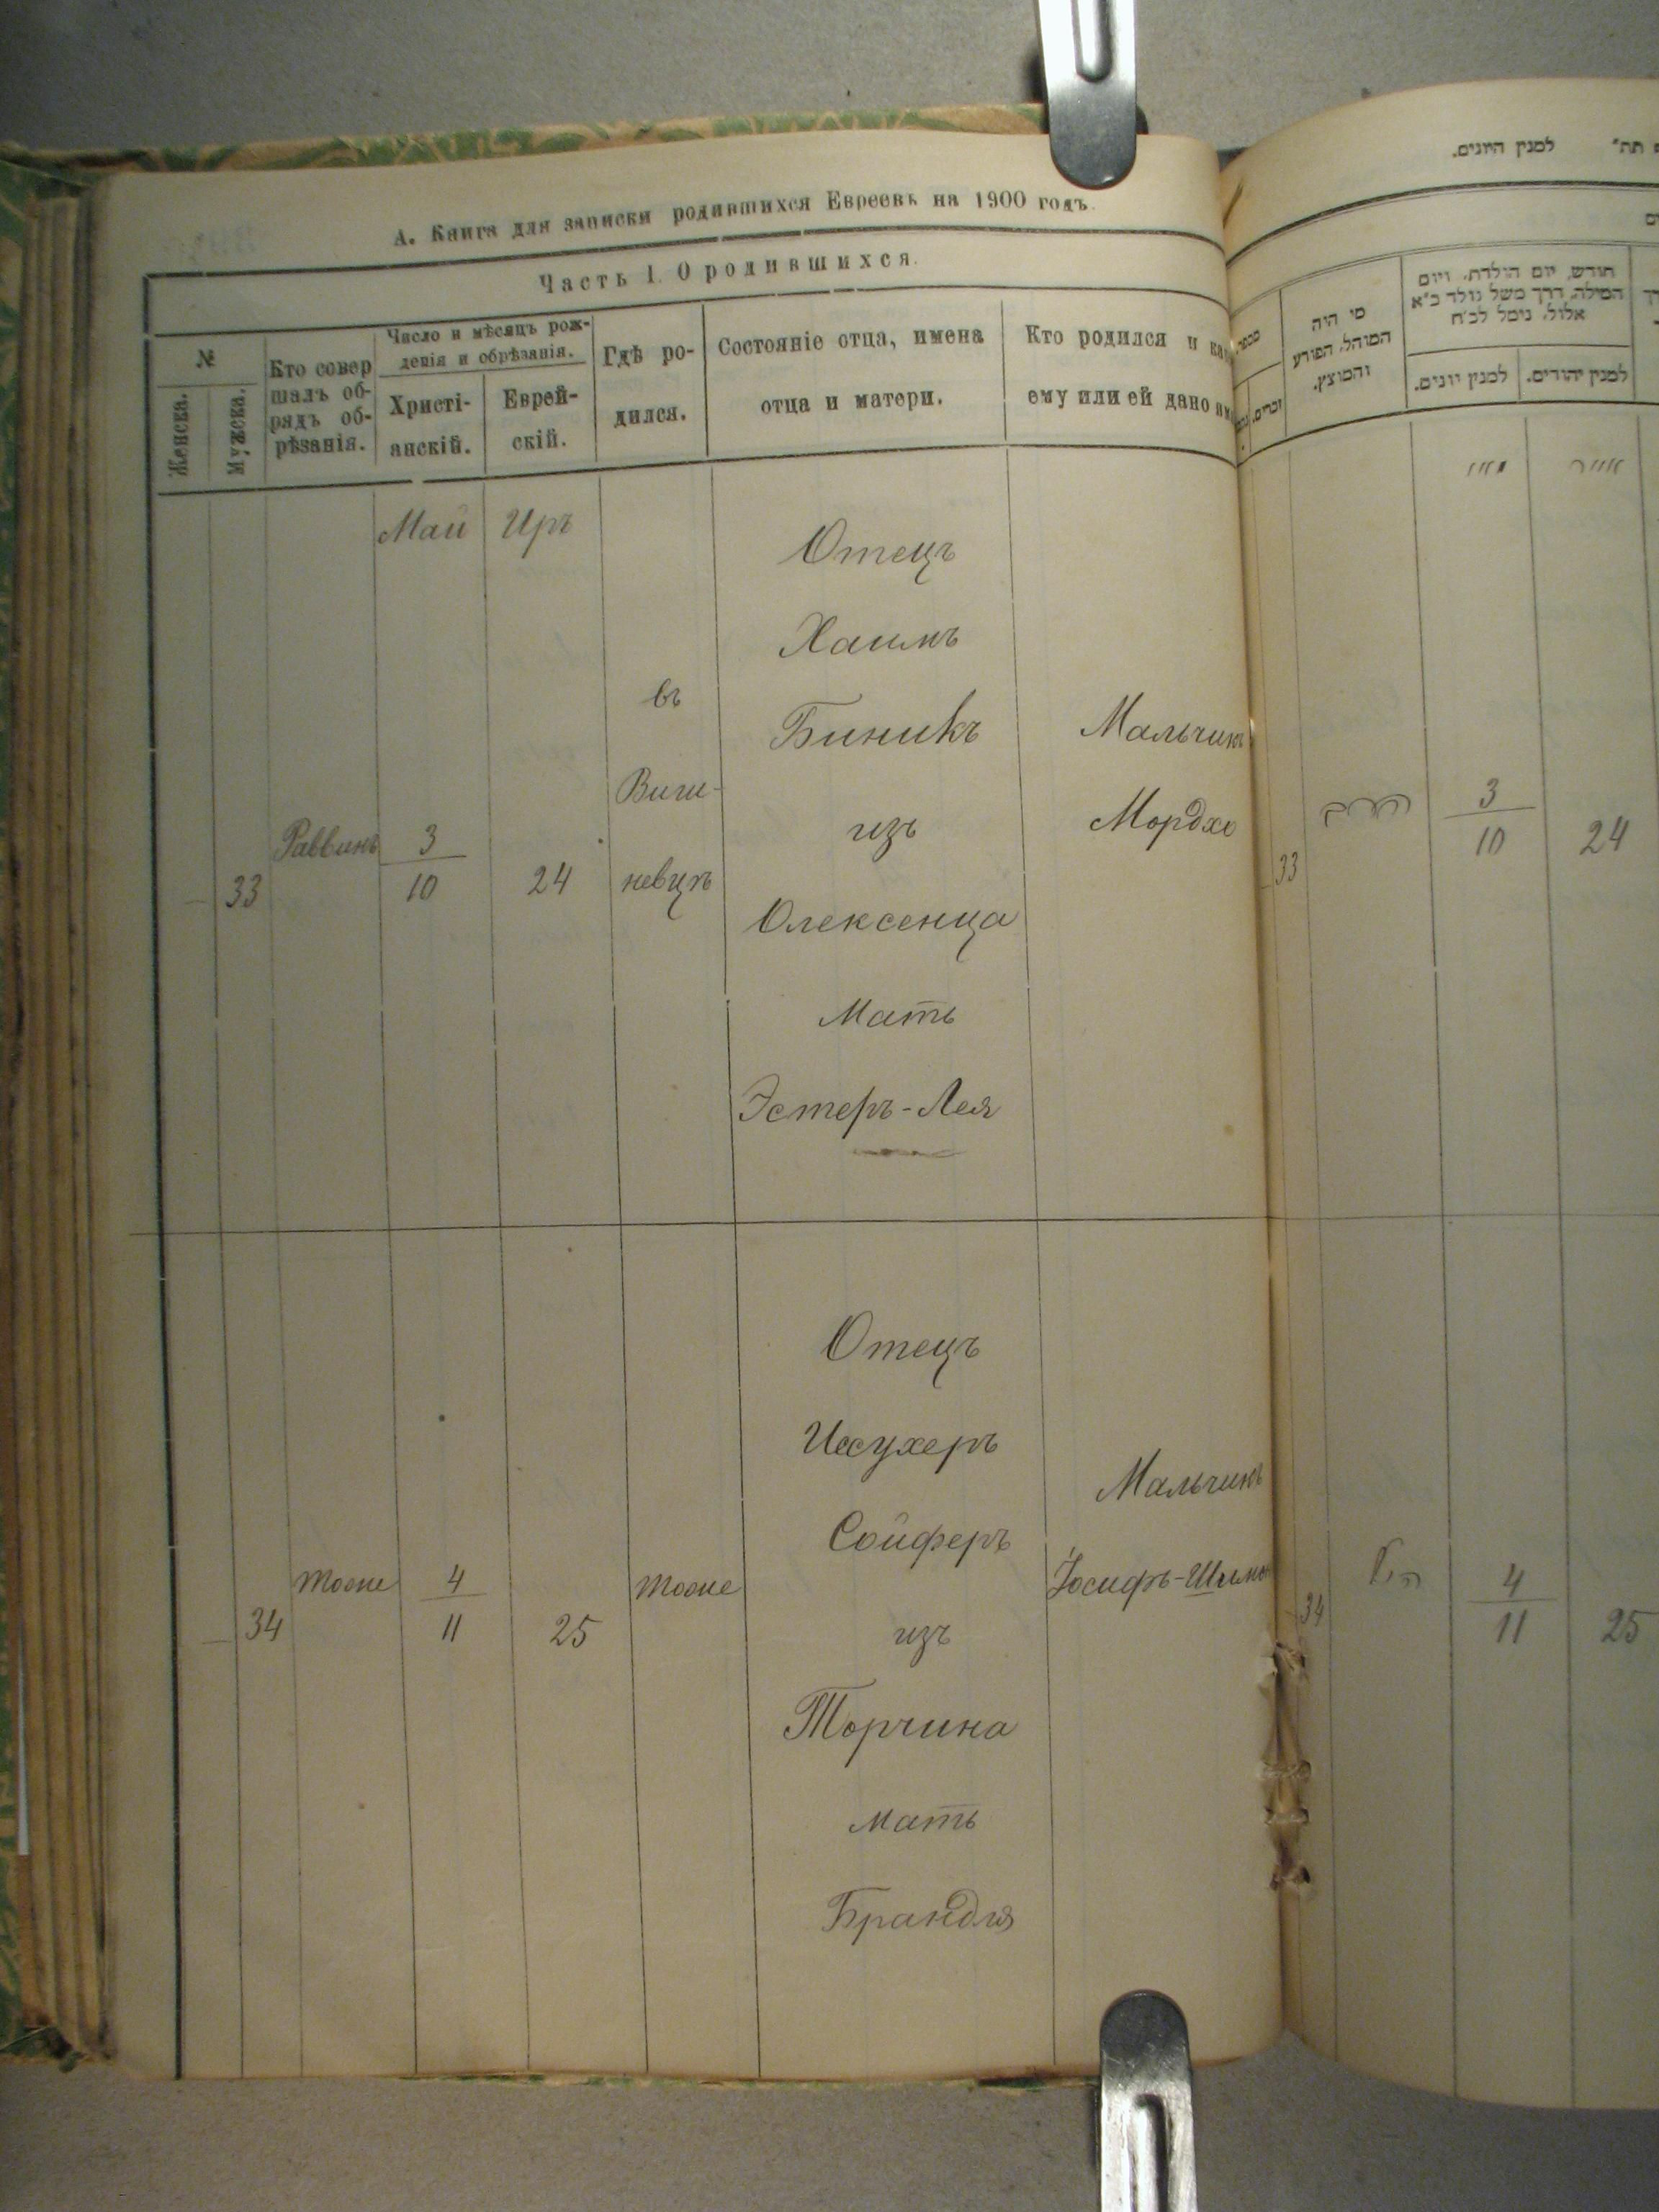 А. Книга для записки родившихся Евреевъ на 1900 годъ.
Часть I. О родившихся.
№
Женска.
Мужска.
Кто совер
шалъ об-
рядъ об-
рѣзанія.
Число и мѣсяцъ рож-
денія и обрѣзанія.
Христі-
анскій.
Еврей-
скій.
Гдѣ ро-
дился.
Состояніе отца, имена
отца и матери.
Кто родился и
ему или ей дано
Май
Иръ
33
Раввинъ
3
10
24
въ
Виги-
невцѣ
Отецъ
Хаимъ
Биникъ
изъ
Олексенца
Мать
Эстеръ-Лея
Мальчикъ
Мордхо
34
тоже
4
11
25
тоже
Отецъ
Иссухеръ
Сойферъ
изъ
Торчина
мать
Брандля
Мальчикъ
Іосифъ-
למנין היונים.
מי היה
המוהל, הפורע
והמוצץ.
חודש, יום הולדת, ויום
המילה, דרך משל נולד כ״א
אלול, נימל לכ״ח
למנין יונים.
למנין יהודים.
זכרים.
מאי
אייר
33
הרב
3
10
24
34
הנ״ל
4
11
25